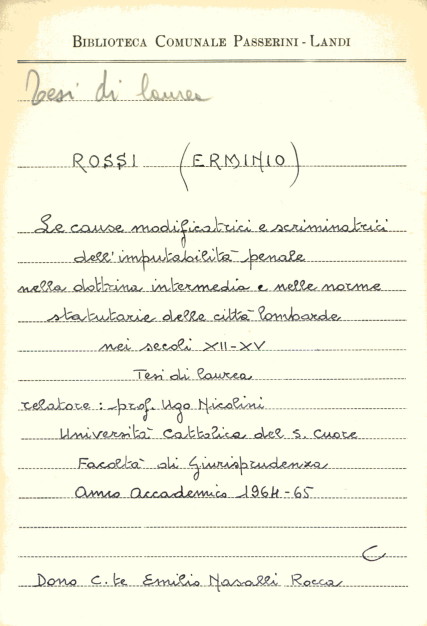 BIBLIOTECA COMUNALE PASSERINI - LANDI
Tesi di laurea
ROSSI (ERMINIO)
Le cause modificatrici e scriminatrici
dell'imputabilità penale
nella dottrina intermedia e nelle norme
statutarie delle città lombarde
nei secoli XII-XV
Tesi di laurea
relatore: prof. Ugo Nicolini
Università Cattolica del S. Cuore
Facoltà di Giurisprudenza
Anno Accademico 1964-65
C
Dono C.te Emilio Nasalli Rocca